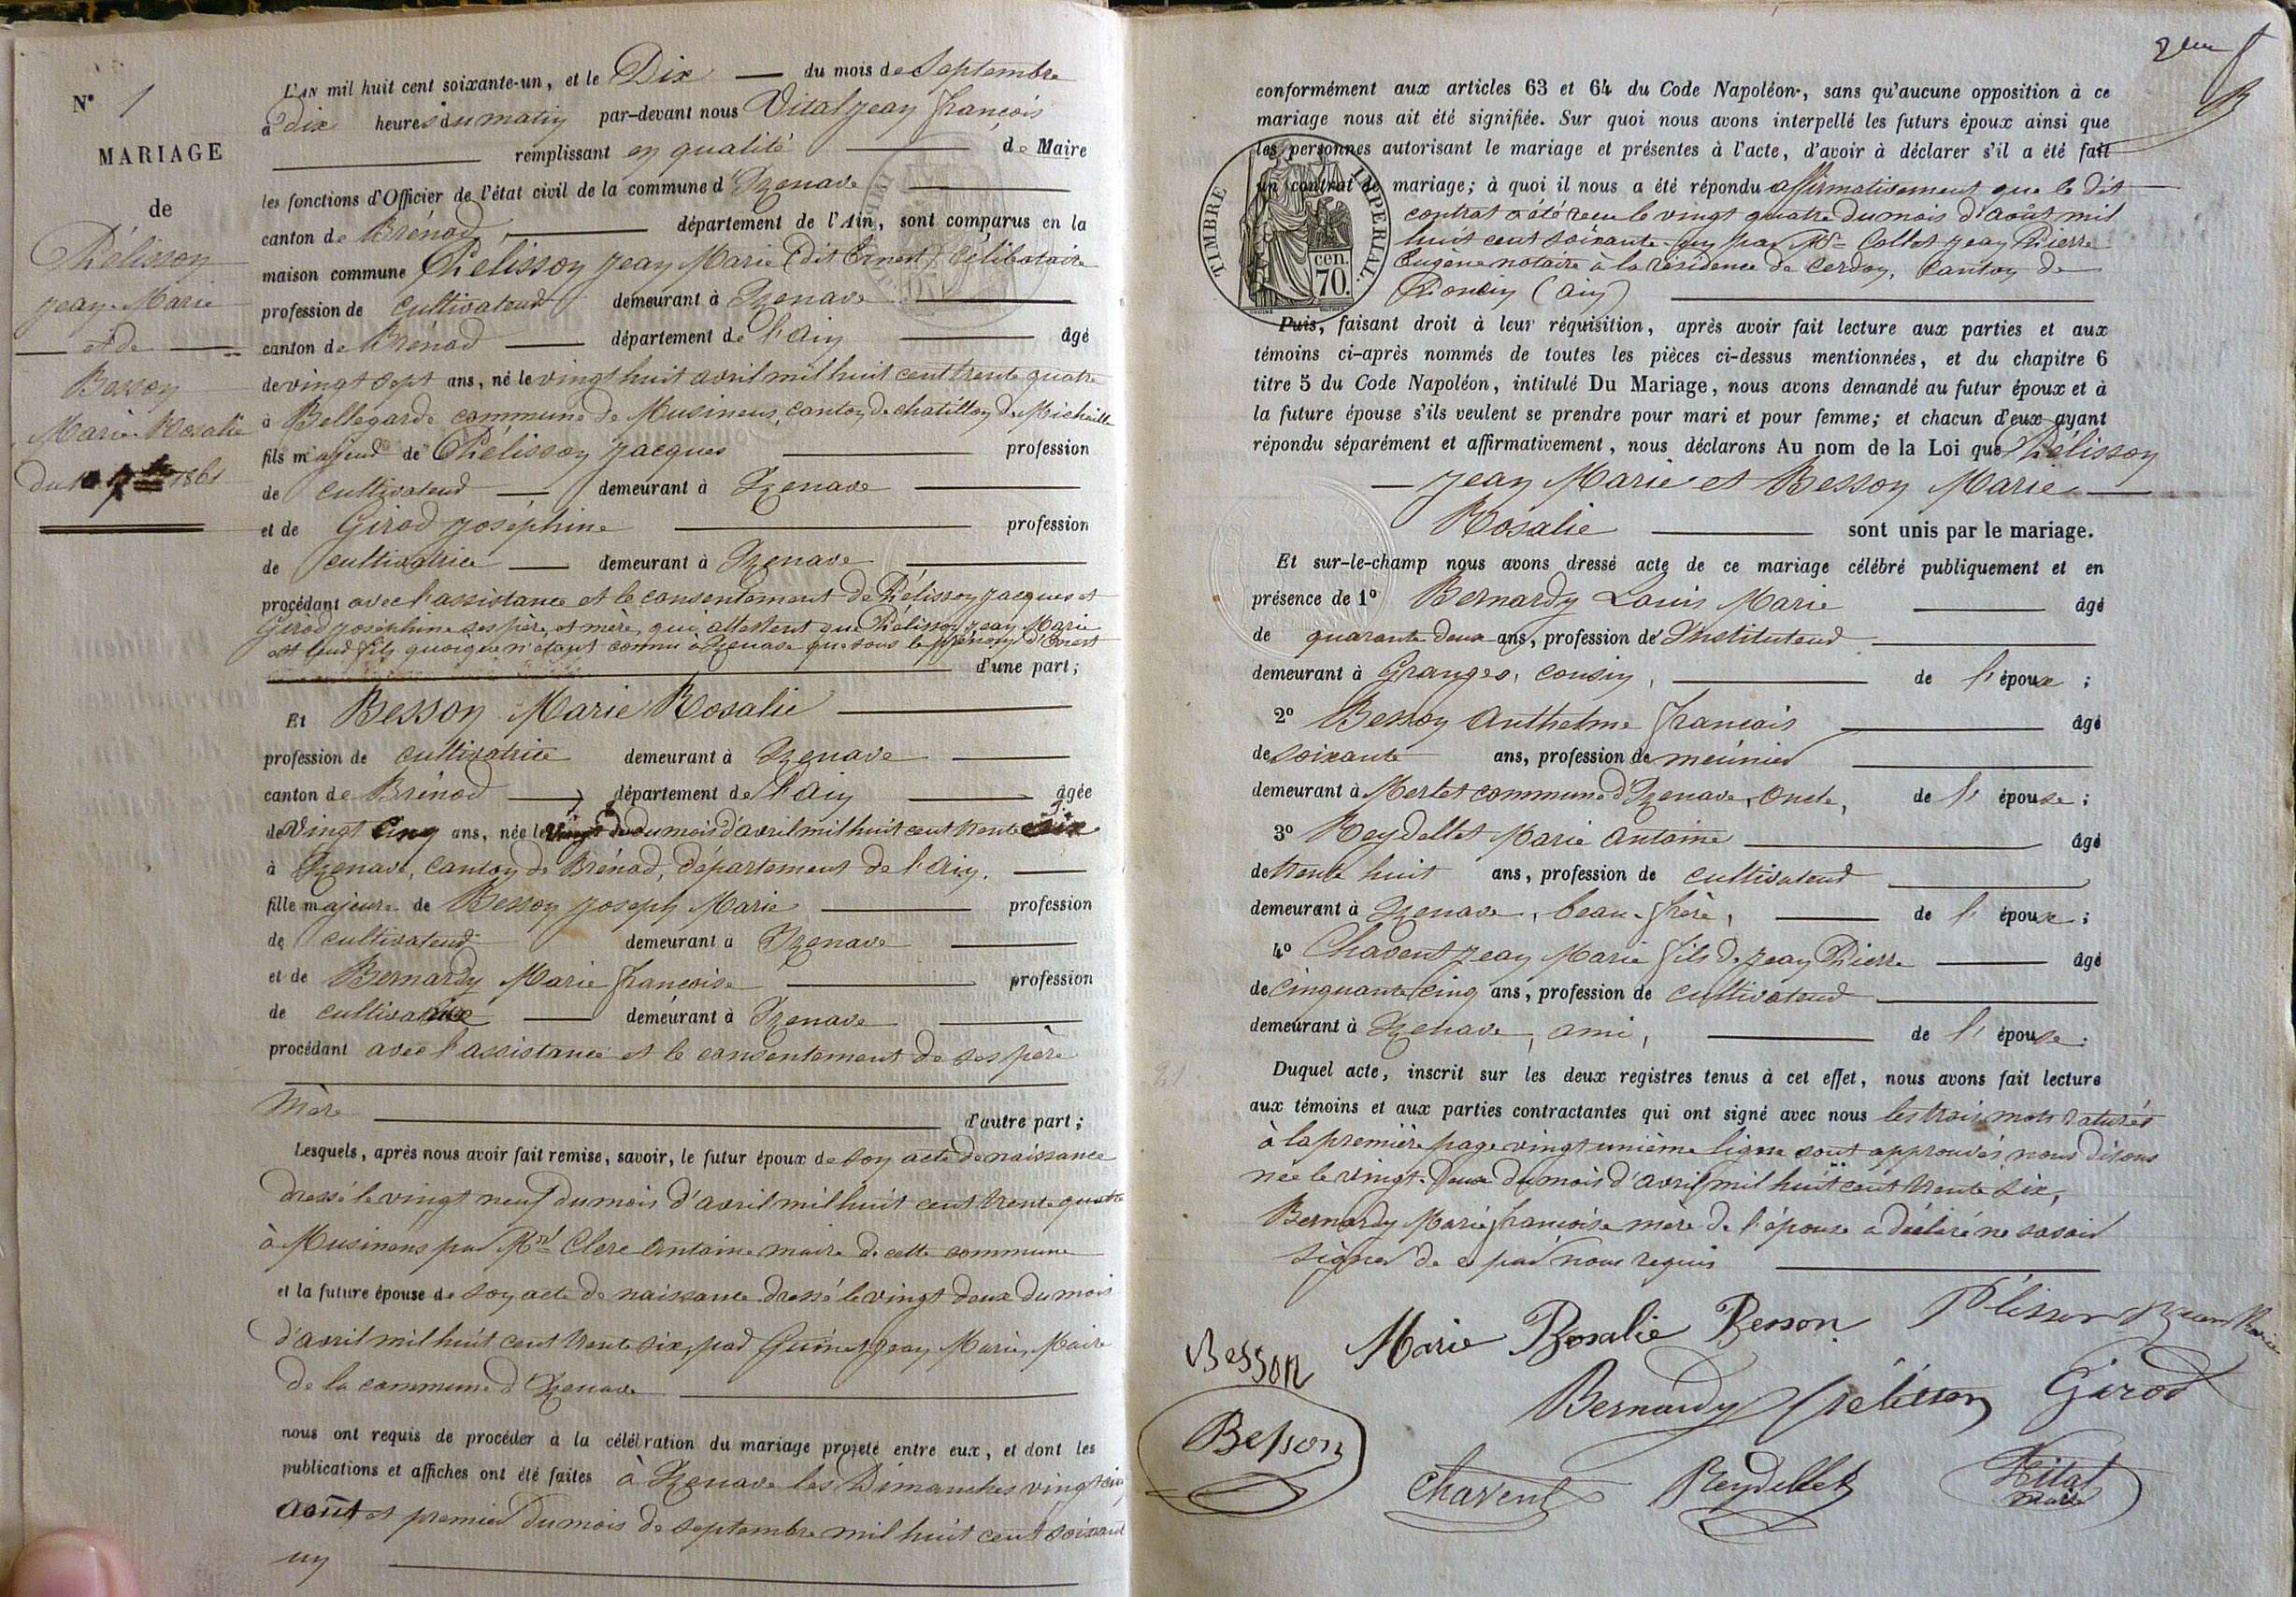 N° 1
MARIAGE
de
Pélisson
Jean-Marie
et de
Besson
Marie Rosalie
du 10 7bre 1861
L'AN mil huit cent soixante-un, et le Dix du mois de Septembre
à dix heures du matin par-devant nous Vital Jean François
remplissant en qualité de Maire
les fonctions d'Officier de l'état civil de la commune d'Izenave
canton de Brénod département de l'Ain, sont comparus en la
maison commune Pélisson Jean Marie (dit Ernest) Célibataire
profession de cultivateur demeurant à Izenave
canton de Brénod département de l'Ain âgé
de vingt sept ans, né le vingt huit avril mil huit cent trente quatre
à Bellegarde commune de Musinens, canton de chatillon de Michaille
fils majeur de Pélisson Jacques profession
de cultivateur demeurant à Izenave
et de Girod Joséphine profession
de cultivatrice demeurant à Izenave
procédant avec l'assistance et le consentement de Pélisson Jacques et
Girod Joséphine ses père et mère, qui attestent que Pélisson Jean Marie
est leur fils quoique n'étant connu à Izenave que sous le prénom d'Ernest
d'une part;
Et Besson Marie Rosalie
profession de cultivatrice demeurant à Izenave
canton de Brénod département de l'Ain âgée
de Vingt Cinq ans, née le vingt deux du mois d'avril mil huit cent trente six
à Izenave, canton de Brénod, département de l'Ain.
fille majeure de Besson Joseph Marie profession
de cultivateur demeurant à Izenave
et de Bernardy Marie françoise profession
de cultivatrice demeurant à Izenave
procédant avec l'assistance et le consentement de ses père
mère
d'autre part;
Lesquels, après nous avoir fait remise, savoir, le futur époux de son acte de naissance
dressé le vingt neuf du mois d'avril mil huit cent trente quatre
à Musinens par Mr Clerc Antoine maire de cette commune
et la future épouse de son acte de naissance dressé le vingt deux du mois
d'avril mil huit cent trente six, par Guinet Jean Marie, Maire
de la commune d'Izenave
nous ont requis de procéder à la célébration du mariage projeté entre eux, et dont les
publications et affiches ont été faites à Izenave les Dimanches vingt cinq
Août et premier du mois de septembre mil huit cent soixante
un
2ème f
conformément aux articles 63 et 64 du Code Napoléon, sans qu'aucune opposition à ce
mariage nous ait été signifiée. Sur quoi nous avons interpellé les futurs époux ainsi que
les personnes autorisant le mariage et présentes à l'acte, d'avoir à déclarer s'il a été fait
un contrat de mariage; à quoi il nous a été répondu affirmativement que le dit
contrat a été recu le vingt quatre du mois d'août mil
huit cent soixante-un par Me Collet Jean Pierre
Eugène notaire à la résidence de Cerdon, Canton de
Poncin (Ain)
TIMBRE IMPERIAL
cen.
70.
Puis, faisant droit à leur réquisition, après avoir fait lecture aux parties et aux
témoins ci-après nommés de toutes les pièces ci-dessus mentionnées, et du chapitre 6
titre 5 du Code Napoléon, intitulé Du Mariage, nous avons demandé au futur époux et à
la future épouse s'ils veulent se prendre pour mari et pour femme; et chacun d'eux ayant
répondu séparément et affirmativement, nous déclarons Au nom de la Loi que Pélisson
Jean Marie et Besson Marie
Rosalie sont unis par le mariage.
Et sur-le-champ nous avons dressé acte de ce mariage célébré publiquement et en
présence de 1° Bernardy Louis Marie âgé
de quarante deux ans, profession de Instituteur
demeurant à Granges, cousin, de l'épouse;
2° Besson Anthelme françois âgé
de soixante ans, profession de meunier
demeurant à Merlet commune d'Izenave, Oncle, de l'épouse;
3° Reydellet Marie Antoine âgé
de trente huit ans, profession de cultivateur
demeurant à Izenave, beau-frère, de l'épouse;
4° Chavent Jean Marie fils de Jean Pierre âgé
de cinquante cinq ans, profession de cultivateur
demeurant à Izenave, ami, de l'épouse:
Duquel acte, inscrit sur les deux registres tenus à cet effet, nous avons fait lecture
aux témoins et aux parties contractantes qui ont signé avec nous les trois mots raturés
à la première page vingt unième ligne sont approuvés nous disons
née le vingt-deux du mois d'avril mil huit cent trente six,
Bernardy Marie françoise mère de l'épouse a déclaré ne savoir
signer de ce par nous requis
Besson Marie Rosalie Besson Pélisson Jean Marie
Besson Bernardy Pélisson Girod
Chavent Reydellet Vital
maire